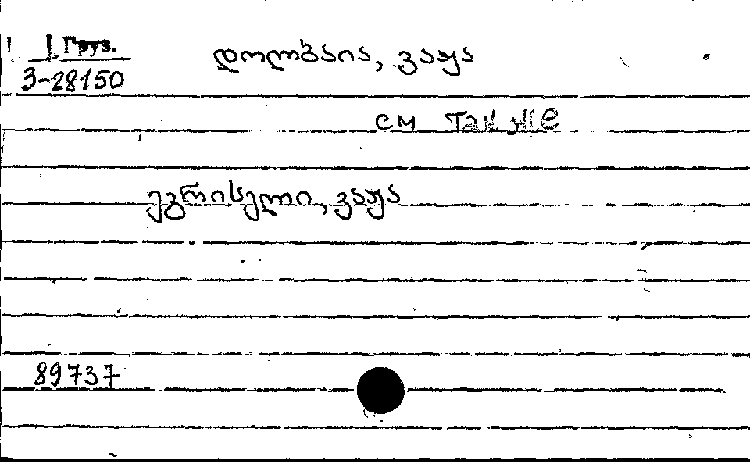 Груз.
დოლბაია, ვაჟა
3-28150
см также
ეგრისელი, ვაჟა
89737